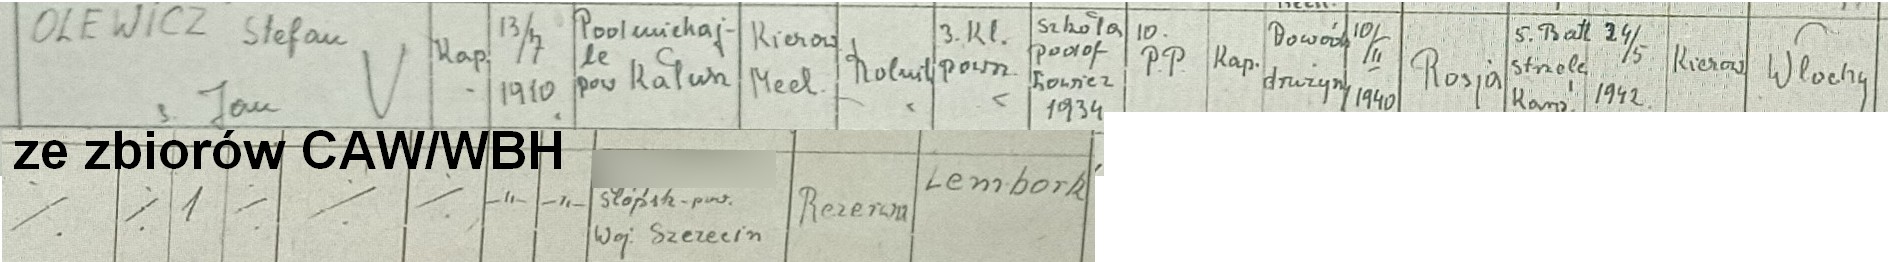 OLEWICZ Stefan
s. Jan
Kap.
13/7
1910
Podmichaj-
le
pow Kałusz
Kierow
Mech.
Rolnik
3. Kl.
pown.
Szkoła
podof
Łomież
1934
10.
P.P.
Kap.
Dowód
drużyny
10/II
1940
Rosja
5. Bat
strzelc
Karp.
24/5
1942.
Kierow
Włochy
ze zbiorów CAW/WBH
1
-"-
-"-
Słópsk-pow.
Woj. Szczecin
Rezerwa
Lembork